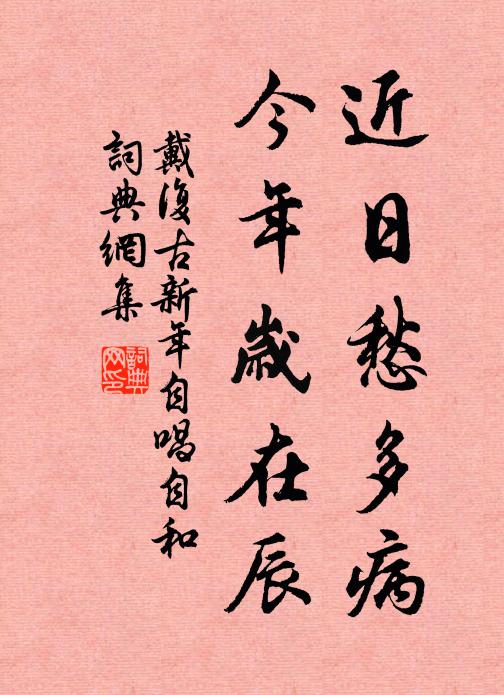 近日愁多病
今年歲在辰
戴復古新年自唱自和
詞典網集
詞典網印